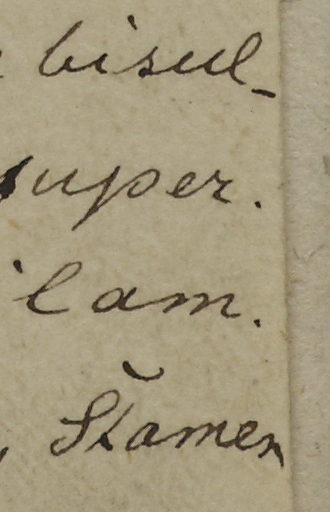 bisul-
super.
lam.
, Stamen